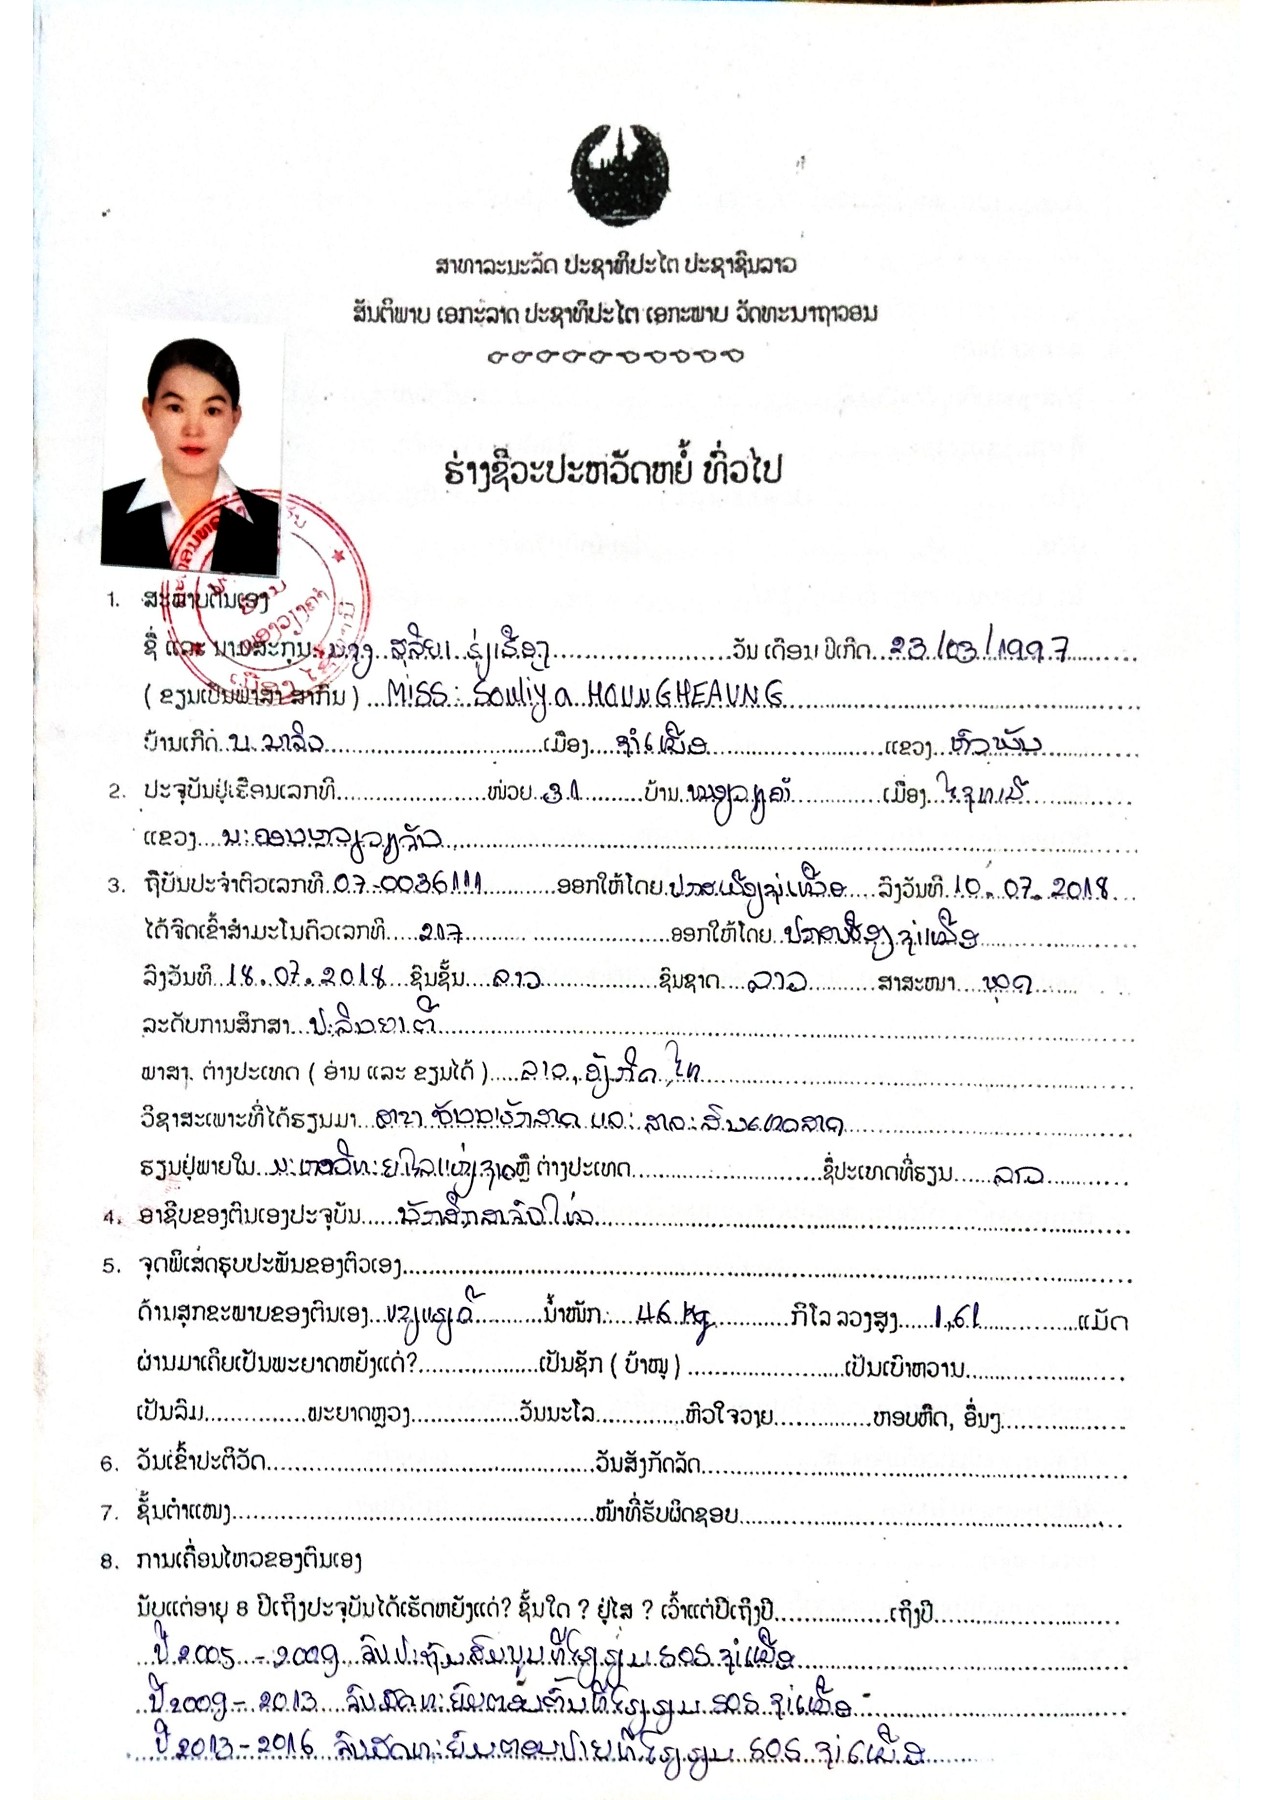 ສາທາລະນະລັດ ປະຊາທິປະໄຕ ປະຊາຊົນລາວ
ສັນຕິພາບ ເອກະລາດ ປະຊາທິປະໄຕ ເອກະພາບ ວັດທະນາຖາວອນ
ຮ່າງຊີວະປະຫວັດຫຍໍ້ ທົ່ວໄປ
1. ສະພາບຕົນເອງ
ຊື່ ແລະ ນາມສະກຸນ: ນາງ ສຸລິຍາ ຮຸ່ງເຮືອງ ວັນ ເດືອນ ປີເກີດ 23/03/1997
( ຂຽນເປັນພາສາ ສາກົນ ) MISS: Souliya HOUNGHEAUNG
ບ້ານເກີດ ບ. ນາລິວ ເມືອງ ຊຳເໜືອ ແຂວງ ຫົວພັນ
2. ປະຈຸບັນຢູ່ເຮືອນເລກທີ ໜ່ວຍ 31 ບ້ານ ໜອງວຽງຄຳ ເມືອງ ໄຊທານີ
ແຂວງ ນະຄອນຫລວງວຽງຈັນ
3. ຖືບັນປະຈຳຕົວເລກທີ 07-0036111 ອອກໃຫ້ໂດຍ ປກສ ເມືອງຊຳເໜືອ ລົງວັນທີ 10. 07. 2018
ໄດ້ຈົດເຂົ້າສຳມະໂນຄົວເລກທີ 217 ອອກໃຫ້ໂດຍ ປກສ ເມືອງ ຊຳເໜືອ
ລົງວັນທີ 18. 07. 2018 ຊົນຊັ້ນ ລາວ ຊົນຊາດ ລາວ ສາສະໜາ ພຸດ
ລະດັບການສຶກສາ ປະລິນຍາຕີ
ພາສາ ຕ່າງປະເທດ ( ອ່ານ ແລະ ຂຽນໄດ້ ) ລາວ, ອັງກິດ, ໄທ
ວິຊາສະເພາະທີ່ໄດ້ຮຽນມາ ສາຂາ ບັນນາຮັກສາດ ແລະ ສາລະສົນເທດສາດ
ຮຽນຢູ່ພາຍໃນ ມະຫາວິທະຍາໄລແຫ່ງຊາດ ຫຼື ຕ່າງປະເທດ ຊື່ປະເທດທີ່ຮຽນ ລາວ
4. ອາຊີບຂອງຕົນເອງປະຈຸບັນ ນັກສຶກສາຈົບໃໝ່
5. ຈຸດພິເສດຮູບປະພັນຂອງຕົວເອງ
ດ້ານສຸກຂະພາບຂອງຕົນເອງ ແຂງແຮງດີ ນ້ຳໜັກ: 46 kg ກິໂລ ລວງສູງ 1,61 ແມັດ
ຜ່ານມາເຄີຍເປັນພະຍາດຫຍັງແດ່? ເປັນຊັກ ( ບ້າໝູ ) ເປັນເບົາຫວານ
ເປັນລົມ ພະຍາດຫຼວງ ວັນນະໂລ ຫົວໃຈວາຍ ຫອບຫືດ, ອື່ນໆ
6. ວັນເຂົ້າປະຕິວັດ ວັນສັງກັດລັດ
7. ຊັ້ນຕຳແໜ່ງ ໜ້າທີ່ຮັບຜິດຊອບ
8. ການເຄື່ອນໄຫວຂອງຕົນເອງ
ນັບແຕ່ອາຍຸ 8 ປີເຖິງປະຈຸບັນໄດ້ເຮັດຫຍັງແດ່? ຊັ້ນໃດ ? ຢູ່ໃສ ? ເວົ້າແຕ່ປີເຖິງປີ ເຖິງປີ
ປີ 2005 - 2009 ຈົບ ປະຖົມສົມບູນທີ່ໂຮງຮຽນ SOS ຊຳເໜືອ
ປີ 2009 - 2013 ຈົບມັດທະຍົມຕອນຕົ້ນທີ່ໂຮງຮຽນ SOS ຊຳເໜືອ
ປີ 2013 - 2016 ຈົບມັດທະຍົມຕອນປາຍທີ່ໂຮງຮຽນ SOS ຊຳເໜືອ